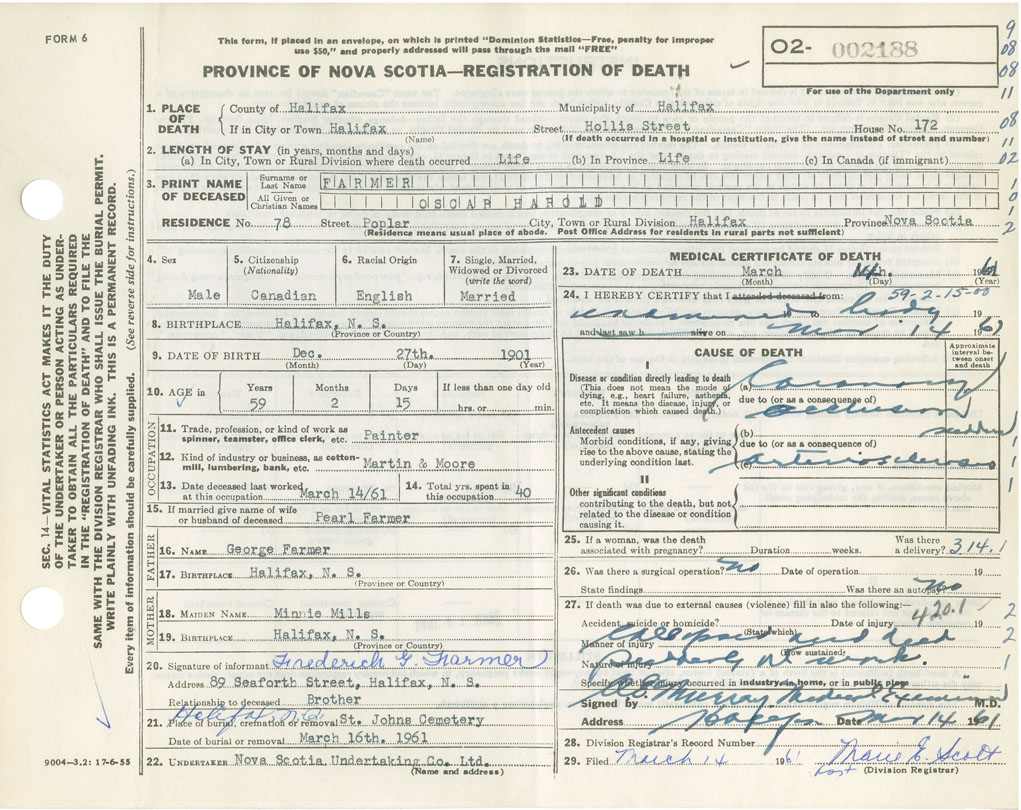 FORM 6
This form, if placed in an envelope, on which is printed "Dominion Statistics—Free, penalty for improper
use $50," and properly addressed will pass through the mail "FREE"
PROVINCE OF NOVA SCOTIA—REGISTRATION OF DEATH
02- 002188
For use of the Department only
9
08
08
11
08
11
02
1
0
1
2
1. PLACE OF DEATH
County of Halifax Municipality of Halifax
If in City or Town Halifax Street Hollis Street House No. 172
(Name) (If death occurred in a hospital or institution, give the name instead of street and number)
2. LENGTH OF STAY (in years, months and days)
(a) In City, Town or Rural Division where death occurred Life (b) In Province Life (c) In Canada (if immigrant)
3. PRINT NAME OF DECEASED
Surname or Last Name FARMER
All Given or Christian Names OSCAR HAROLD
RESIDENCE No. 78 Street Poplar City, Town or Rural Division Halifax Province Nova Scotia
(Residence means usual place of abode. Post Office Address for residents in rural parts not sufficient)
4. Sex
Male
5. Citizenship
(Nationality)
Canadian
6. Racial Origin
English
7. Single, Married,
Widowed or Divorced
(write the word)
Married
8. BIRTHPLACE Halifax, N. S.
(Province or Country)
9. DATE OF BIRTH Dec. 27th. 1901
(Month) (Day) (Year)
10. AGE in
Years Months Days If less than one day old
59 2 15 hrs. or min.
OCCUPATION
11. Trade, profession, or kind of work as
spinner, teamster, office clerk, etc. Painter
12. Kind of industry or business, as cotton-
mill, lumbering, bank, etc. Martin & Moore
13. Date deceased last worked
at this occupation March 14/61
14. Total yrs. spent in
this occupation 40
15. If married give name of wife
or husband of deceased Pearl Farmer
FATHER
16. NAME George Farmer
17. BIRTHPLACE Halifax, N. S.
(Province or Country)
MOTHER
18. MAIDEN NAME Minnie Mills
19. BIRTHPLACE Halifax, N. S.
(Province or Country)
20. Signature of informant Frederick G. Farmer
Address 89 Seaforth Street, Halifax, N. S.
Relationship to deceased Brother
21. Place of burial, cremation or removal St. Johns Cemetery
Halifax
Date of burial or removal March 16th. 1961
22. UNDERTAKER Nova Scotia Undertaking Co. Ltd.
(Name and address)
MEDICAL CERTIFICATE OF DEATH
23. DATE OF DEATH March 14th. 1961
(Month) (Day) (Year)
24. I HEREBY CERTIFY that I attended deceased from:
59-2-15-00
examined body 19
and last saw h alive on Mar 14 1961
CAUSE OF DEATH
Approximate
interval be-
tween onset
and death
I
Disease or condition directly leading to death
(This does not mean the mode of
dying, e.g., heart failure, asthenia,
etc. It means the disease, injury, or
complication which caused death.)
(a) Coronary
due to (or as a consequence of)
occlusion
Antecedent causes
Morbid conditions, if any, giving
rise to the above cause, stating the
underlying condition last.
(b) sudden
due to (or as a consequence of)
(c) arteriosclerosis
II
Other significant conditions
contributing to the death, but not
related to the disease or condition
causing it.
1
1
1
25. If a woman, was the death
associated with pregnancy? Duration weeks.
Was there
a delivery? 314.1
26. Was there a surgical operation? no Date of operation 19
State findings Was there an autopsy? no
27. If death was due to external causes (violence) fill in also the following:—
420.1
Accident, suicide or homicide? Date of injury 19
(State which)
Manner of injury Collapsed and dead
(How sustained)
Nature of injury suddenly at work.
Specify whether injury occurred in industry, in home, or in public place
2
2
1
1
Signed by Murray Medical Examiner M.D.
Address Date Mar 14 1961
28. Division Registrar's Record Number
29. Filed March 14 1961 Marie E. Scott
(Division Registrar)
SEC. 14—VITAL STATISTICS ACT MAKES IT THE DUTY
OF THE UNDERTAKER OR PERSON ACTING AS UNDER-
TAKER TO OBTAIN ALL THE PARTICULARS REQUIRED
IN THE "REGISTRATION OF DEATH" AND TO FILE THE
SAME WITH THE DIVISION REGISTRAR WHO SHALL ISSUE THE BURIAL PERMIT.
WRITE PLAINLY WITH UNFADING INK. THIS IS A PERMANENT RECORD.
Every item of information should be carefully supplied. (See reverse side for instructions.)
9004—3.2: 17-6-55